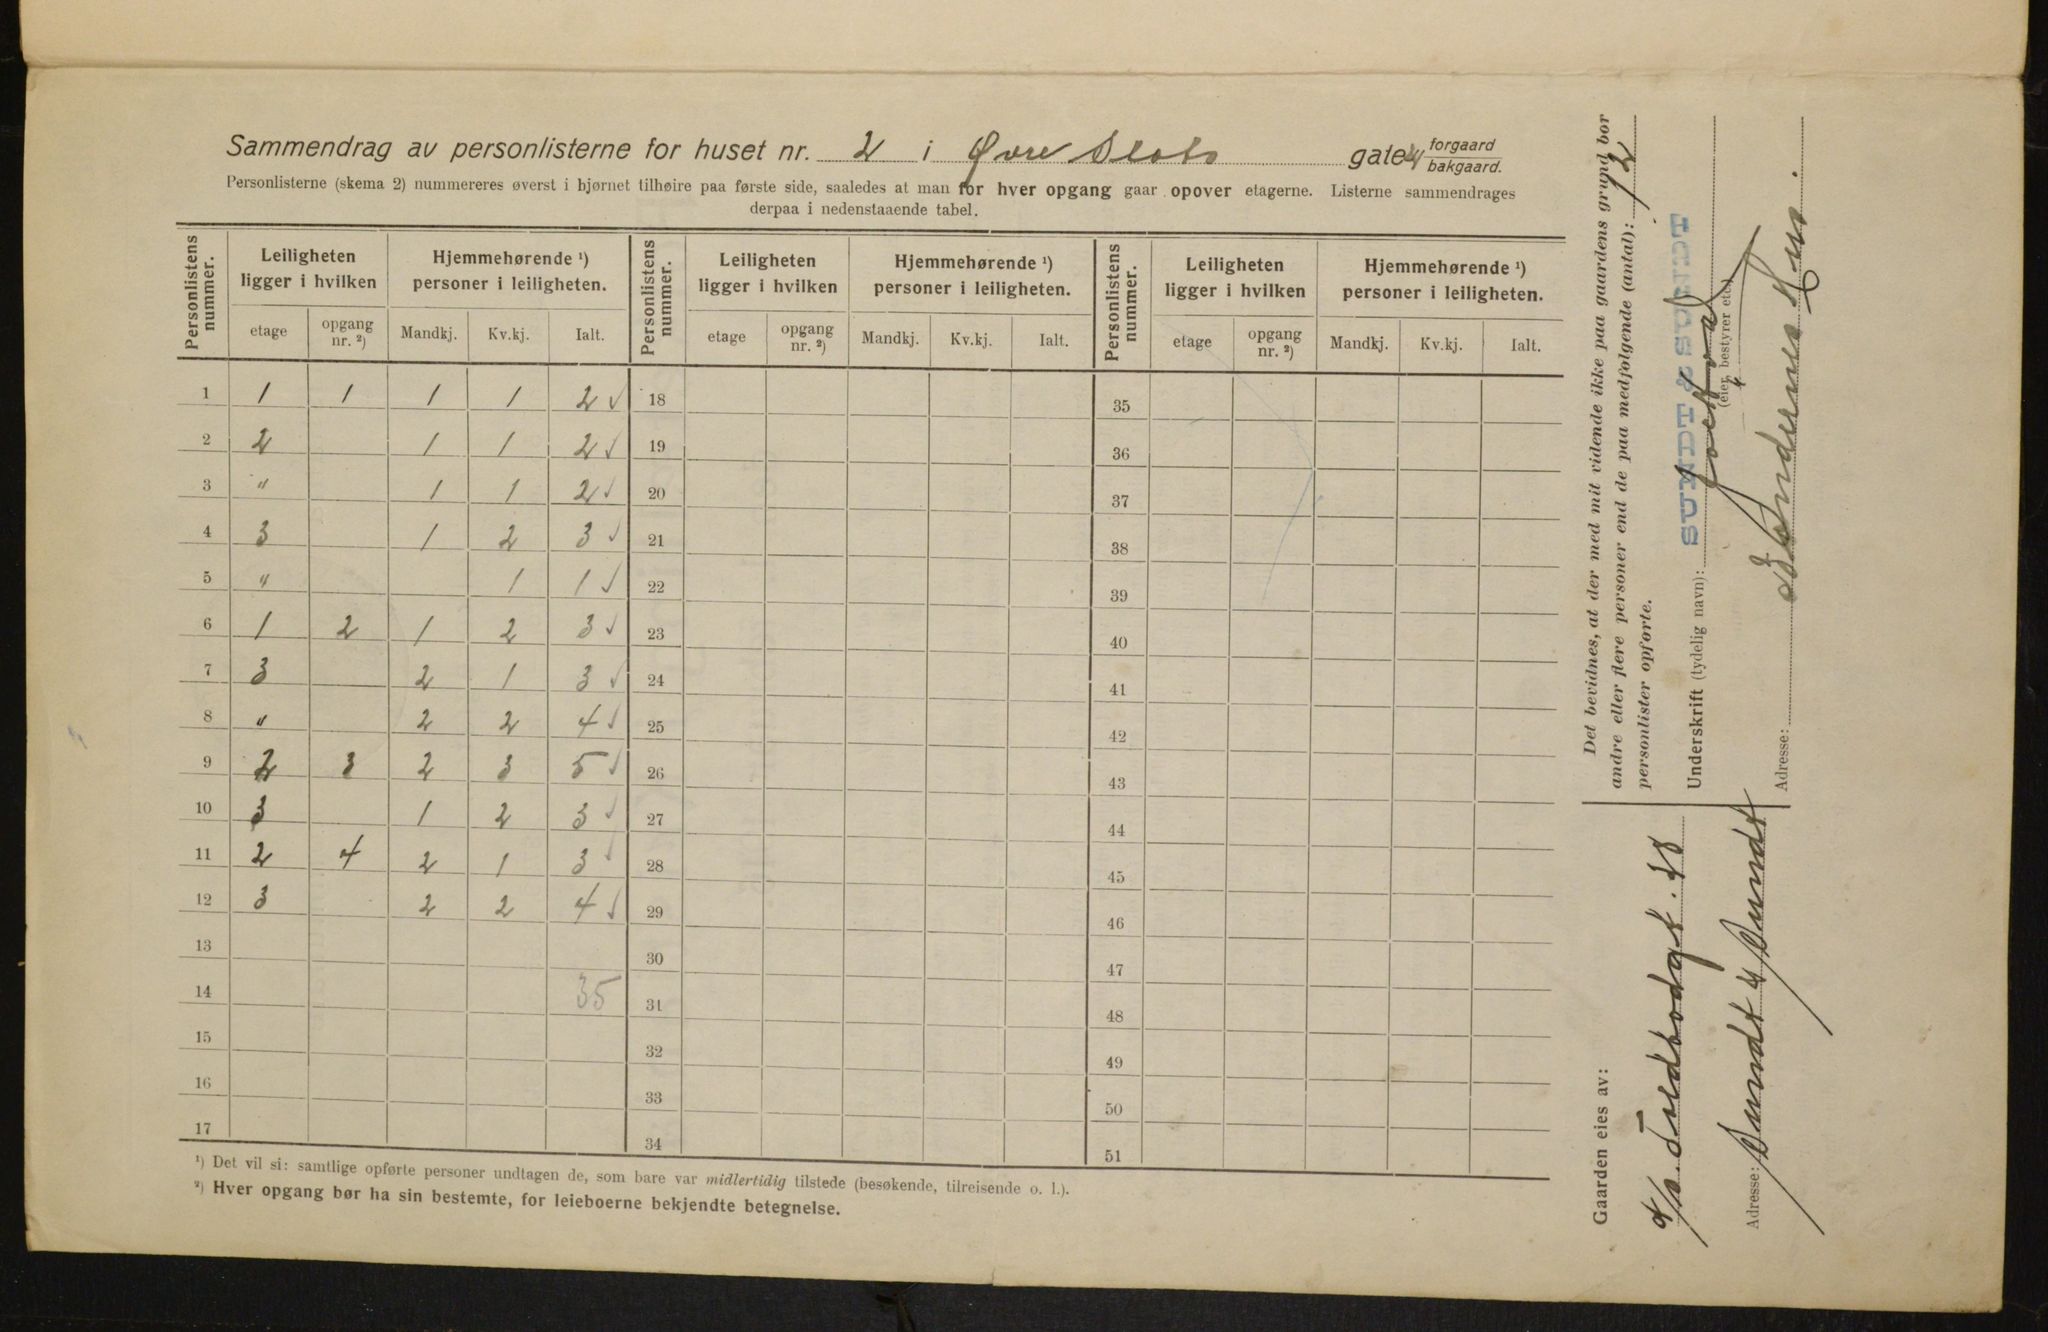 Sammendrag av personlisterne for huset nr. 2 i Øvre Slots gate 4 forgaard bakgaard.
Personlisterne (skema 2) nummereres øverst i hjørnet tilhøire paa første side, saaledes at man for hver opgang gaar opover etagerne. Listerne sammendrages
derpaa i nedenstaaende tabel.
Personlistens nummer. Leiligheten ligger i hvilken Hjemmehørende ¹) personer i leiligheten. Personlistens nummer. Leiligheten ligger i hvilken Hjemmehørende ¹) personer i leiligheten. Personlistens nummer. Leiligheten ligger i hvilken Hjemmehørende ¹) personer i leiligheten.
etage opgang nr. ²) Mandkj. Kv.kj. Ialt. etage opgang nr. ²) Mandkj. Kv.kj. Ialt. etage opgang nr. ²) Mandkj. Kv.kj. Ialt.
1 1 1 1 1 2 ✓ 18 35
2 2 1 1 2 ✓ 19 36
3 " 1 1 2 ✓ 20 37
4 3 1 2 3 ✓ 21 38
5 " 1 1 ✓ 22 39
6 1 2 1 2 3 ✓ 23 40
7 3 2 1 3 ✓ 24 41
8 " 2 2 4 ✓ 25 42
9 2 3 2 3 5 ✓ 26 43
10 3 1 2 3 ✓ 27 44
11 2 4 2 1 3 ✓ 28 45
12 3 2 2 4 ✓ 29 46
13 30 47
14 35 31 48
15 32 49
16 33 50
17 34 51
¹) Det vil si: samtlige opførte personer undtagen de, som bare var midlertidig tilstede (besøkende, tilreisende o. l.).
²) Hver opgang bør ha sin bestemte, for leieboerne bekjendte betegnelse.
Det bevidnes, at der med mit vidende ikke paa gaardens grund bor
andre eller flere personer end de paa medfølgende (antal): 12
personlister opførte.
SUNDT & SUNDT
Underskrift (tydelig navn):
(eier, bestyrer etc.)
Adresse:
Gaarden eies av:
A/s. Toldbodgt. 38
Adresse: Sundt & Sundt